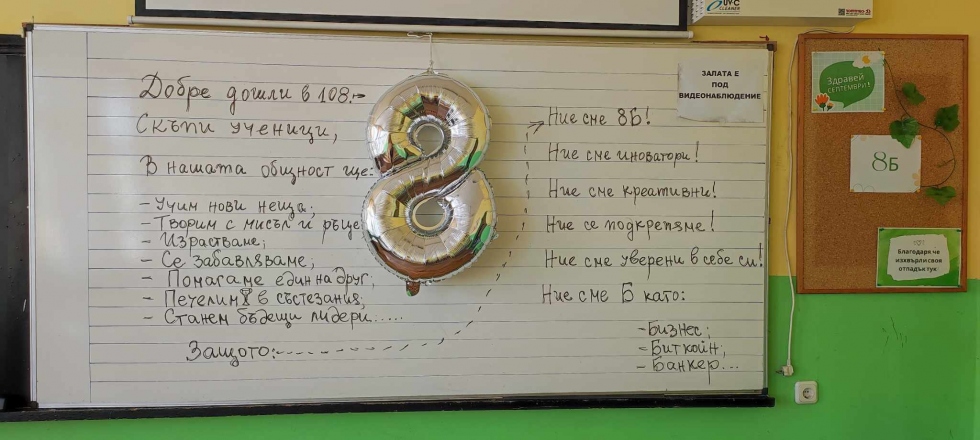 Добре дошли в 108.
Скъпи ученици,
В нашата общност ще:
- Учим нови неща;
- Творим с мисъл и ръце
- Израстваме;
- Се забавляваме;
- Помагаме един на друг;
- Печелим в състезания;
- Станем бъдещи лидери.....
Защото:
Ние сме 8Б!
Ние сме иноватори!
Ние сме креативни!
Ние се подкрепяме!
Ние сме уверени в себе си!
Ние сме Б като:
- Бизнес;
- Биткойн;
- Банкер...
ЗАЛАТА Е
ПОД
ВИДЕОНАБЛЮДЕНИЕ
UV-C
CLEANER
Здравей
СЕПТЕМВРИ!
8Б
Благодаря че
изхвърли своя
отпадък тук